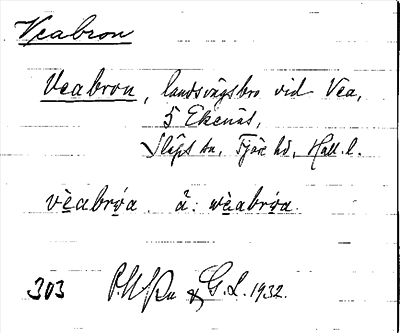 Veabron
Veabron, landsvägsbro vid Vea,
5 Ekenäs,
Släps sn, Fjäre hd, Hall. l.
vèabrọ́a. ä: wèabrọ́a.
303 & G. L. 1932.